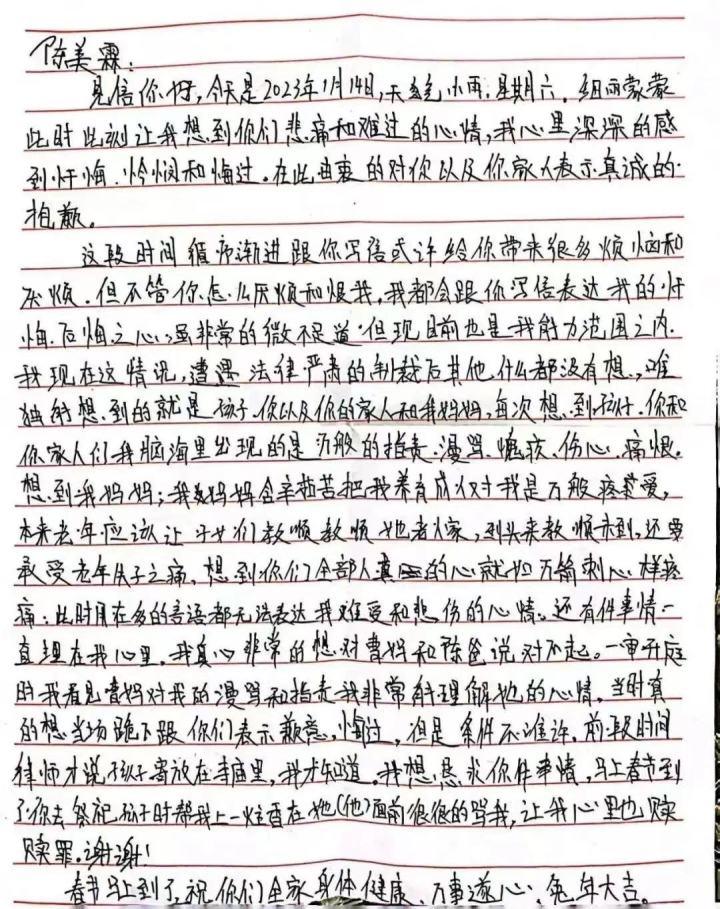 陈美霖：
见信你好，今天是2023年1月14日，天气小雨，星期六，细雨蒙蒙
此时此刻让我想到你们悲痛和难过的心情，我心里深深的感
到忏悔、怜悯和悔过。在此由衷的对你以及你家人表示真诚的
抱歉。
这段时间循序渐进跟你写信或许给你带来很多烦恼和
厌烦，但不管你怎么厌烦和恨我，我都会跟你写信表达我的忏
悔、后悔之心，虽非常的微不足道，但现目前也是我能力范围之内。
我现在这情况，遭遇法律严肃的制裁后其他什么都没有想，唯
独能想到的就是孩子、你以及你的家人和我妈妈，每次想到孩子、你和
你家人们我脑海里出现的是万般的指责、漫骂、愧疚、伤心、痛恨。
想到我妈妈；我妈妈含辛茹苦把我养育成人对我是万般疼爱，
本来老年应该让子女们教顺教顺她老人家，到头来教顺未到，还要
承受老年失子之痛，想到你们全部人真的心就如万箭刺心样疼
痛；此时用在多的言语都无法表达我难受和悲伤的心情。还有件事情一
直埋在我心里，我真心非常的想对曹妈和陈爸说对不起。一审开庭
时我看见曹妈对我的漫骂和指责我非常能理解她的心情，当时真
的想当场跪下跟你们表示歉意、悔过，但是条件不准许，前段时间
律师才说孩子寄放在寺庙里，我才知道。我想恳求你件事情，马上春节到
了你去祭祀孩子时帮我上一炷香在她(他)面前很很的骂我，让我心里也赎
赎罪。谢谢！
春节马上到了，祝你们全家身体健康、万事遂心、兔年大吉。